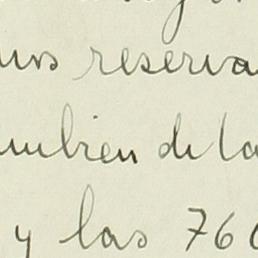 mos reserva
ambien de la
y las 760